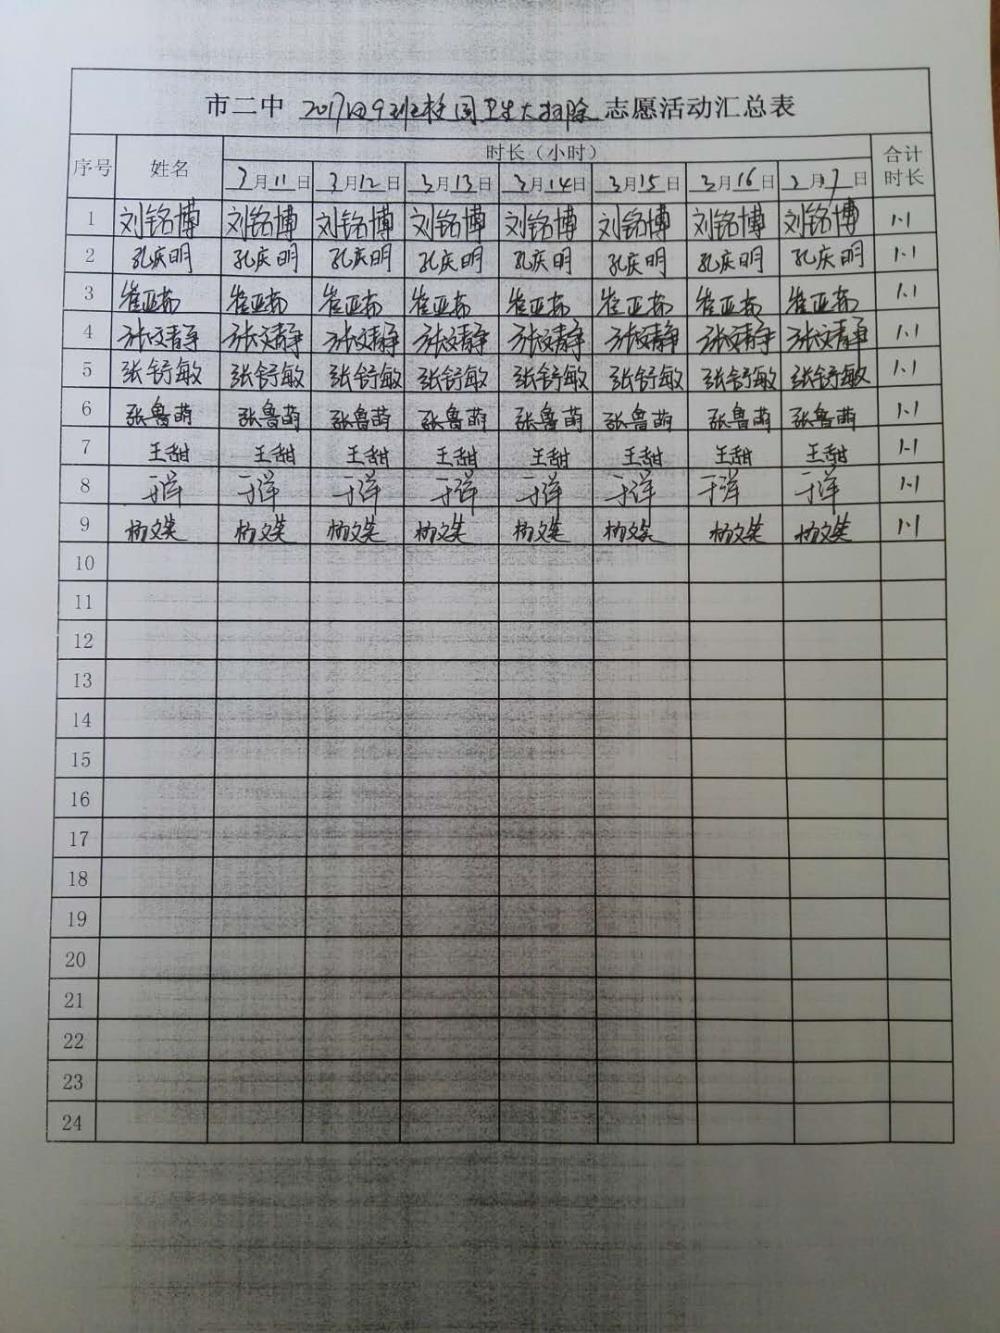 市二中 2017级9班校园卫生大扫除 志愿活动汇总表
序号 姓名 时长（小时） 合计时长
3月11日 3月12日 3月13日 3月14日 3月15日 3月16日 3月7日
1 刘铭博 刘铭博 刘铭博 刘铭博 刘铭博 刘铭博 刘铭博 刘铭博 1.1
2 孔庆明 孔庆明 孔庆明 孔庆明 孔庆明 孔庆明 孔庆明 孔庆明 1.1
3 1.1
4 张文静 张文静 张文静 张文静 张文静 张文静 张文静 张文静 1.1
5 张舒敏 张舒敏 张舒敏 张舒敏 张舒敏 张舒敏 张舒敏 张舒敏 1.1
6 张鲁萌 张鲁萌 张鲁萌 张鲁萌 张鲁萌 张鲁萌 张鲁萌 张鲁萌 1.1
7 王甜 王甜 王甜 王甜 王甜 王甜 王甜 王甜 1.1
8 于洋 于洋 于洋 于洋 于洋 于洋 于洋 于洋 1.1
9 杨文英 杨文英 杨文英 杨文英 杨文英 杨文英 杨文英 杨文英 1.1
10
11
12
13
14
15
16
17
18
19
20
21
22
23
24